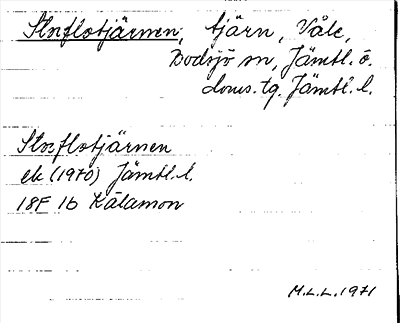 Storflotjärnen, tjärn, Våle,
Bodsjö sn, Jämtl. ö.
doms. tg. Jämtl. l.
Storflotjärnen
ek (1970) Jämtl. l.
18F 1b Kälamon
M.L.L. 1971